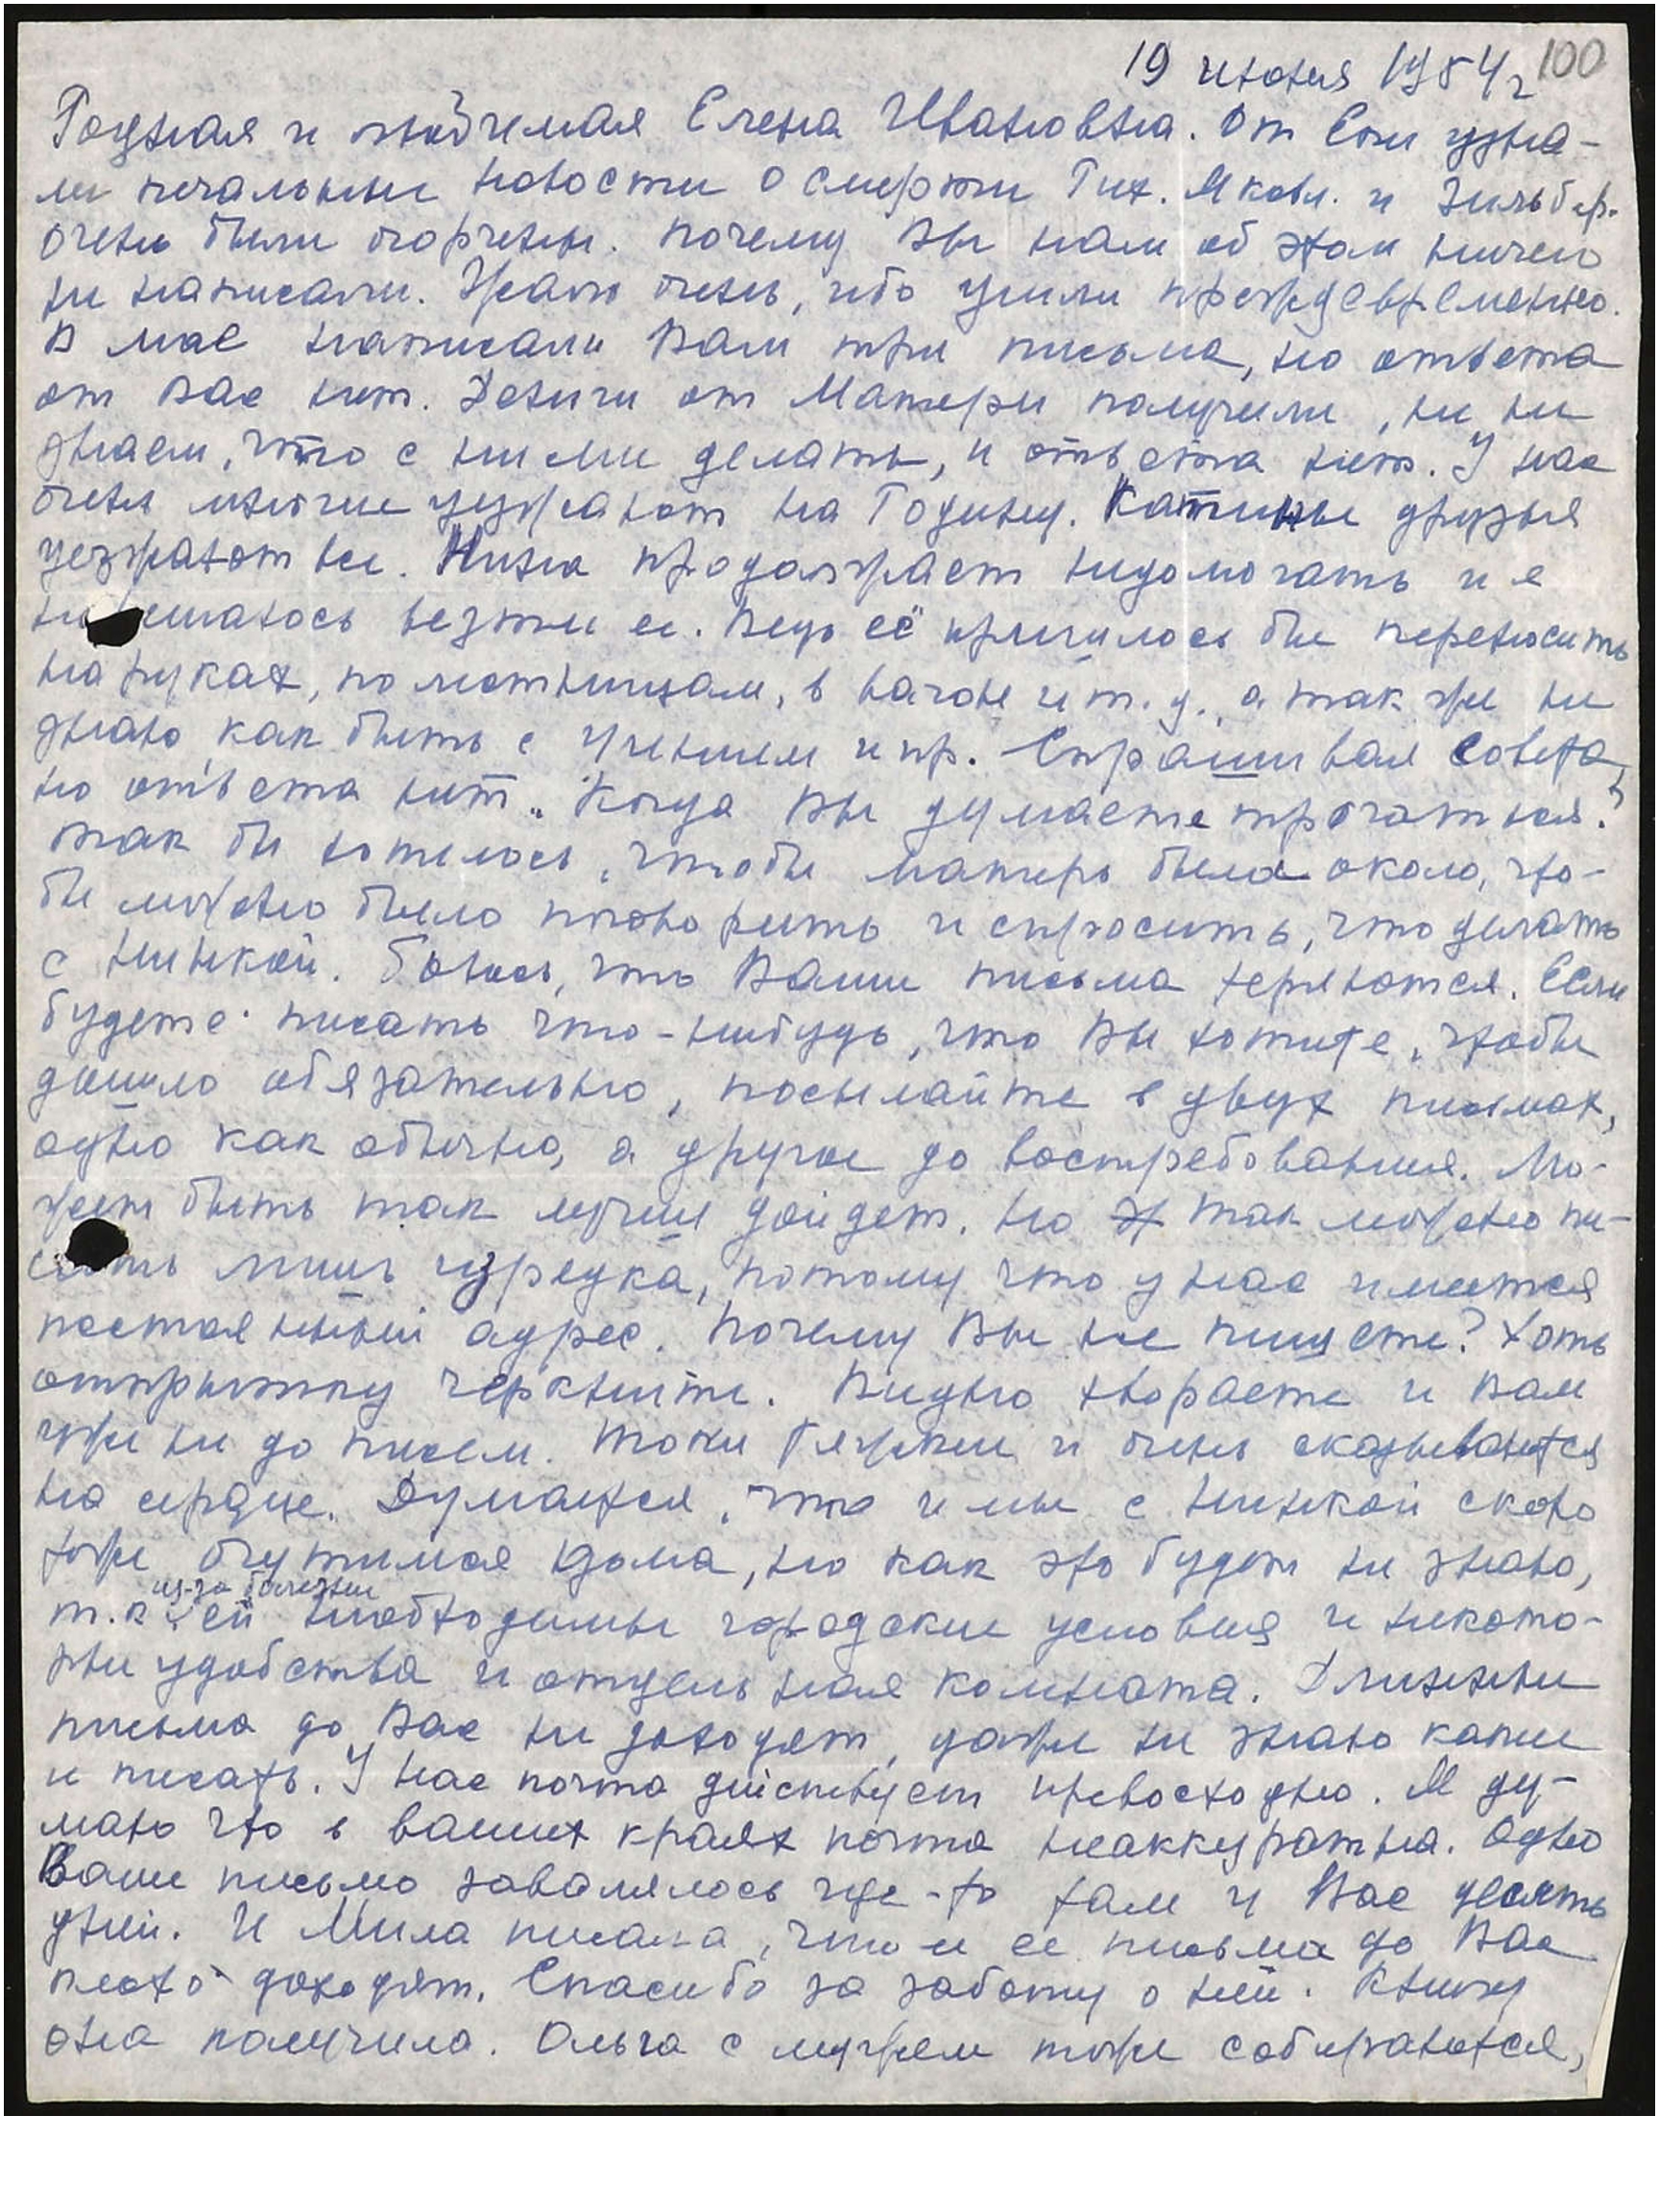 19 июня 1954 г 100
Родная и любимая Елена Ивановна. От Еси узна-
ли печальные новости о смерти Гит. Яковл. и Зильбер.
очень были огорчены. Почему Вы нам об этом ничего
не написали. Жаль очень, ибо ушли преждевременно.
В мае написали Вам три письма, но ответа
от Вас нет. Деньги от Матери получили, не
знаем, что с ними делать, и ответа нет. У нас
очень многие уезжают на Родину. Катины друзья
уезжают все. Нина продолжает недомогать и я
не решаюсь везти ее. Ведь её пришлось бы переносить
на руках, по лестницам, в вагон и т. д., а так же не
знаю как быть с учением и пр. Спрашивал совета,
но ответа нет. Когда Вы думаете трогаться?
так бы хотелось, чтобы матерь была около, что-
бы можно было поговорить и спросить, что делать
с Нинкой. Боюсь, что Ваши письма теряются. Если
будете писать что-нибудь, что Вы хотите, чтобы
дошло обязательно, посылайте в двух письмах,
одно как обычно, а другое до востребования. Мо-
жет быть так лучше дойдет. но так можно пи-
сать лишь изредка, потому что у нас имеется
постоянный адрес. Почему Вы не пишете? Хоть
открытку черкните. Видно хвораете и Вам
уже не до писем. Токи тяжки и очень сказываются
на сердце. Думается, что и мы с Нинкой скоро
тоже очутимся дома, но как это будет не знаю,
из-за болезни
т.к. ей необходимы городские условия и некото-
рые удобства и отдельная комната. Длинные
письма до Вас не доходят, даже не знаю какие
и писать. У нас почта действует превосходно. Я ду-
маю что в ваших краях почта неаккуратна. Одно
Ваше письмо завалялось где-то там у Вас десять
дней. И Мила писала, что и ее письма до Вас
плохо доходят. Спасибо за заботу о ней. Книгу
она получила. Ольга с мужем тоже собираются,